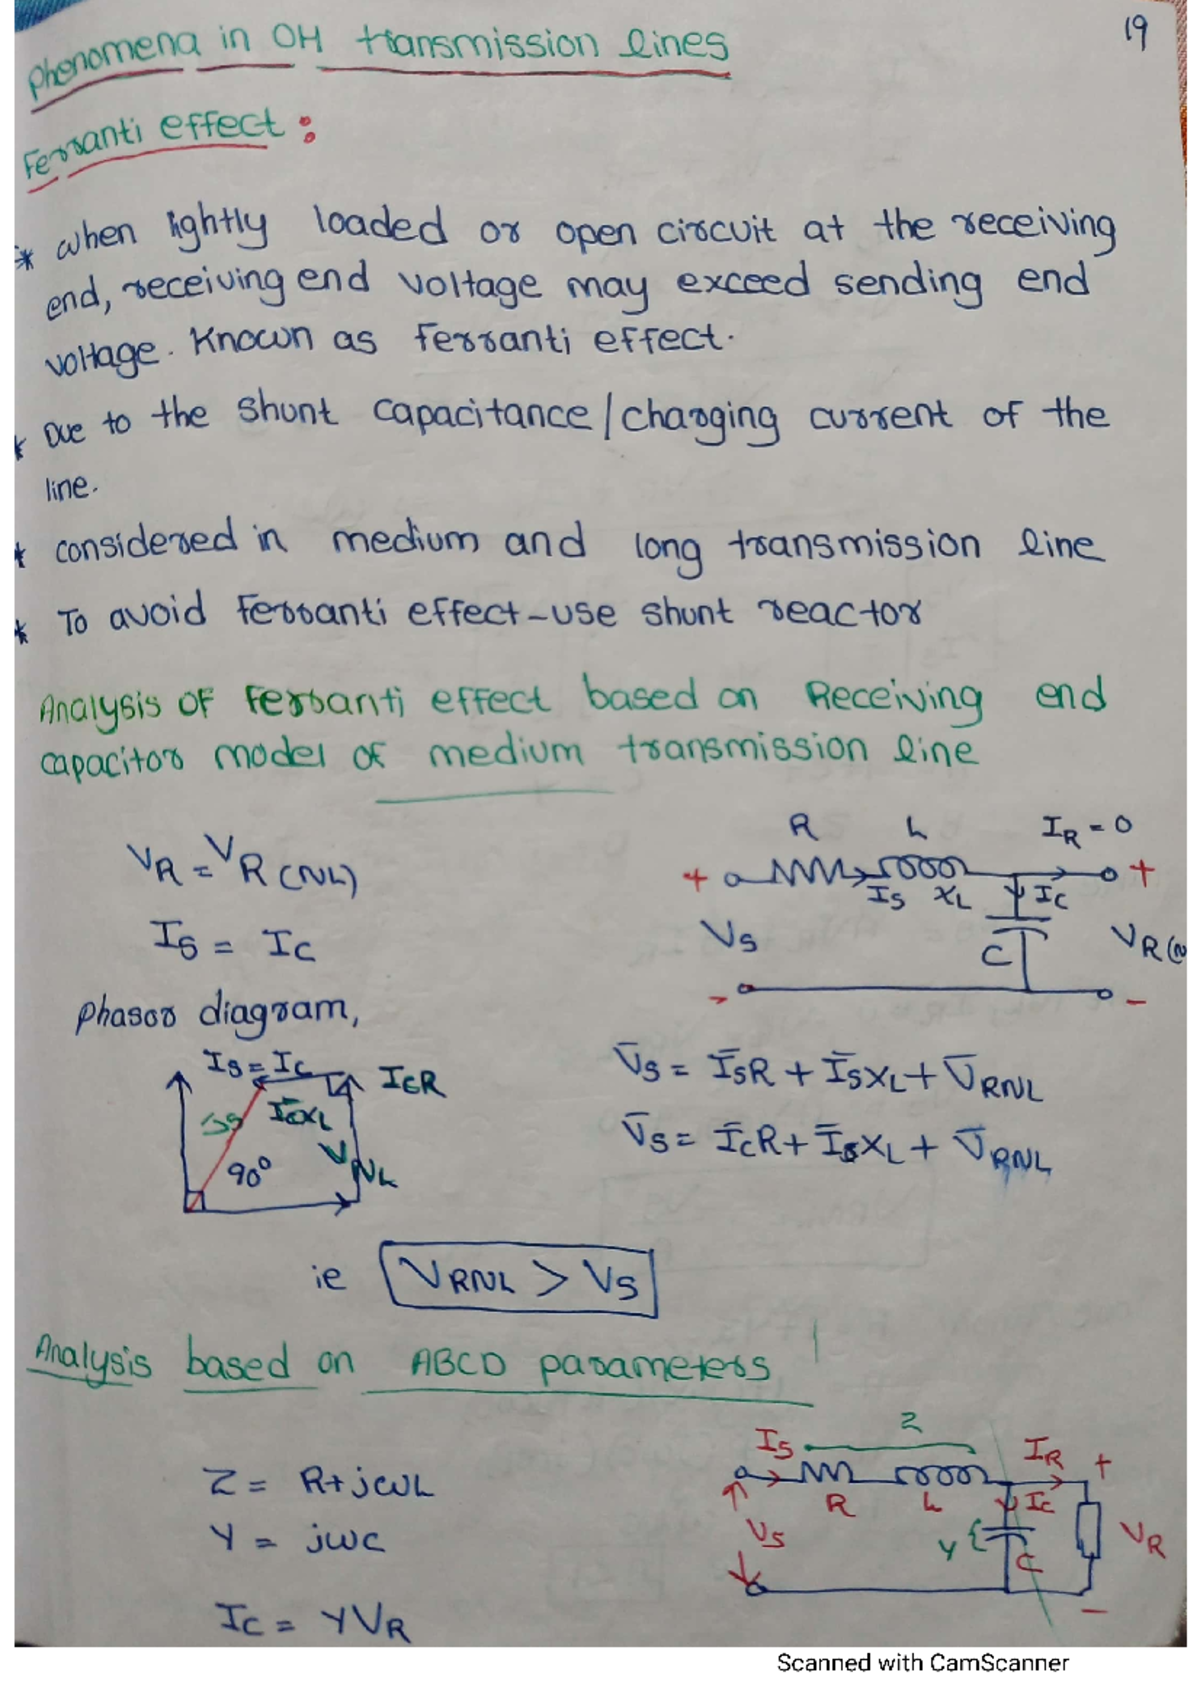 19
Phenomena in OH transmission lines
Ferranti effect:
* when lightly loaded or open circuit at the receiving
end, receiving end voltage may exceed sending end
voltage. Known as ferranti effect.
* Due to the shunt capacitance/charging current of the
line.
* considered in medium and long transmission line
* To avoid ferranti effect-use shunt reactor
Analysis of Ferranti effect based on Receiving end
capacitor model of medium transmission line
VR = VR(NL)
IS = IC
R L IR = 0
+ IS XL IC +
VS C VR(N
- -
phasor diagram,
IS = IC ICR
VS ICXL
90° VNL
V̄S = ĪSR + ĪSXL + V̄RNL
V̄S = ĪCR + ĪSXL + V̄RNL
ie VRNL > VS
Analysis based on ABCD parameters
Z = R+jωL
Y = jωc
IC = YVR
IS Z IR +
R L IC
VS Y C VR
-
Scanned with CamScanner